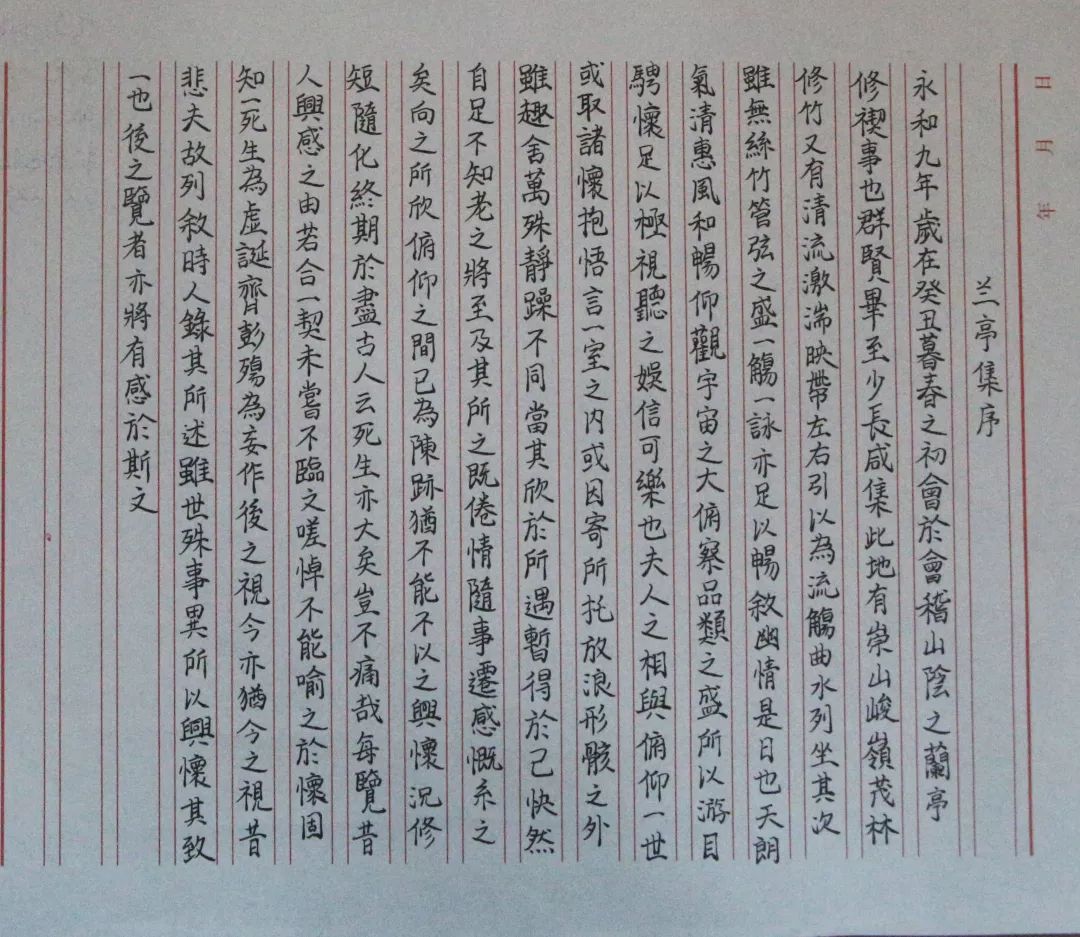 年 月 日
兰亭集序
永和九年歲在癸丑暮春之初會於會稽山陰之蘭亭
修禊事也群賢畢至少長咸集此地有崇山峻嶺茂林
修竹又有清流激湍映帶左右引以為流觴曲水列坐其次
雖無絲竹管弦之盛一觴一詠亦足以暢敘幽情是日也天朗
氣清惠風和暢仰觀宇宙之大俯察品類之盛所以游目
騁懷足以極視聽之娛信可樂也夫人之相與俯仰一世
或取諸懷抱悟言一室之内或因寄所托放浪形骸之外
雖趣舍萬殊靜躁不同當其欣於所遇暫得於己快然
自足不知老之將至及其所之既倦情隨事遷感慨系之
矣向之所欣俯仰之間已為陳跡猶不能不以之興懷況修
短隨化終期於盡古人云死生亦大矣豈不痛哉每覽昔
人興感之由若合一契未嘗不臨文嗟悼不能喻之於懷固
知一死生為虛誕齊彭殤為妄作後之視今亦猶今之視昔
悲夫故列敘時人錄其所述雖世殊事異所以興懷其致
一也後之覽者亦將有感於斯文